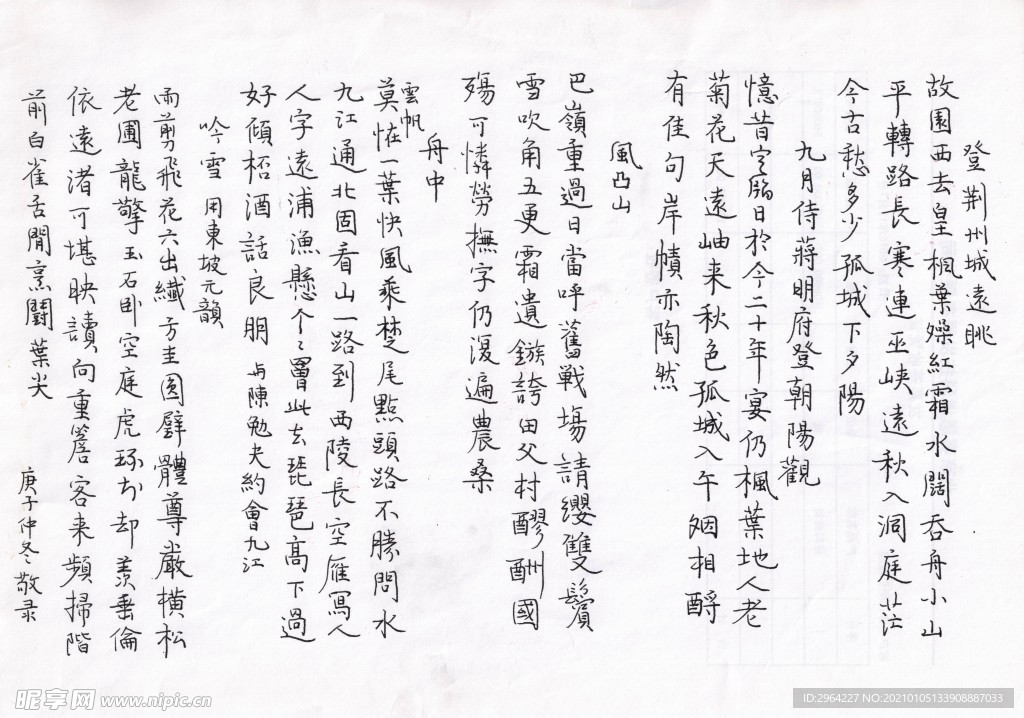 登荆州城遠眺
故園西去皇楓葉燥紅霜水闊吞舟小山
平轉路長寒連巫峽遠秋入洞庭茫
今古愁多少孤城下夕陽
九月侍蔣明府登朝陽觀
憶昔字腸日於今二十年宴仍楓葉地人老
菊花天遠岫来秋色孤城入午烟相酹
有佳句岸幘亦陶然
風凸山
巴嶺重過日當呼舊戦場請纓雙鬢
雪吹角五更霜遺鏃誇田父村醪酬國
殤可憐勞撫字仍复遍農桑
舟中
雲帆
莫怪一葉快風乘楚尾點頭路不勝問水
九江通北固看山一路到西陵長空雁寫人
人字遠浦漁懸个々罾此去琵琶高下過
好傾桮酒話良朋 与陳勉夫約會九江
吟雪 用東坡元韻
雨剪飛花六出纖方圭圓璧體尊嚴横松
老圃龍擎玉石卧空庭虎琢 却羡垂倫
依遠渚可堪映讀向重簷客来頻掃階
前白雀舌閒烹鬪葉尖
庚子仲冬敬录
昵享网 www.nipic.cn
ID:2964227 NO:20210105133908887033